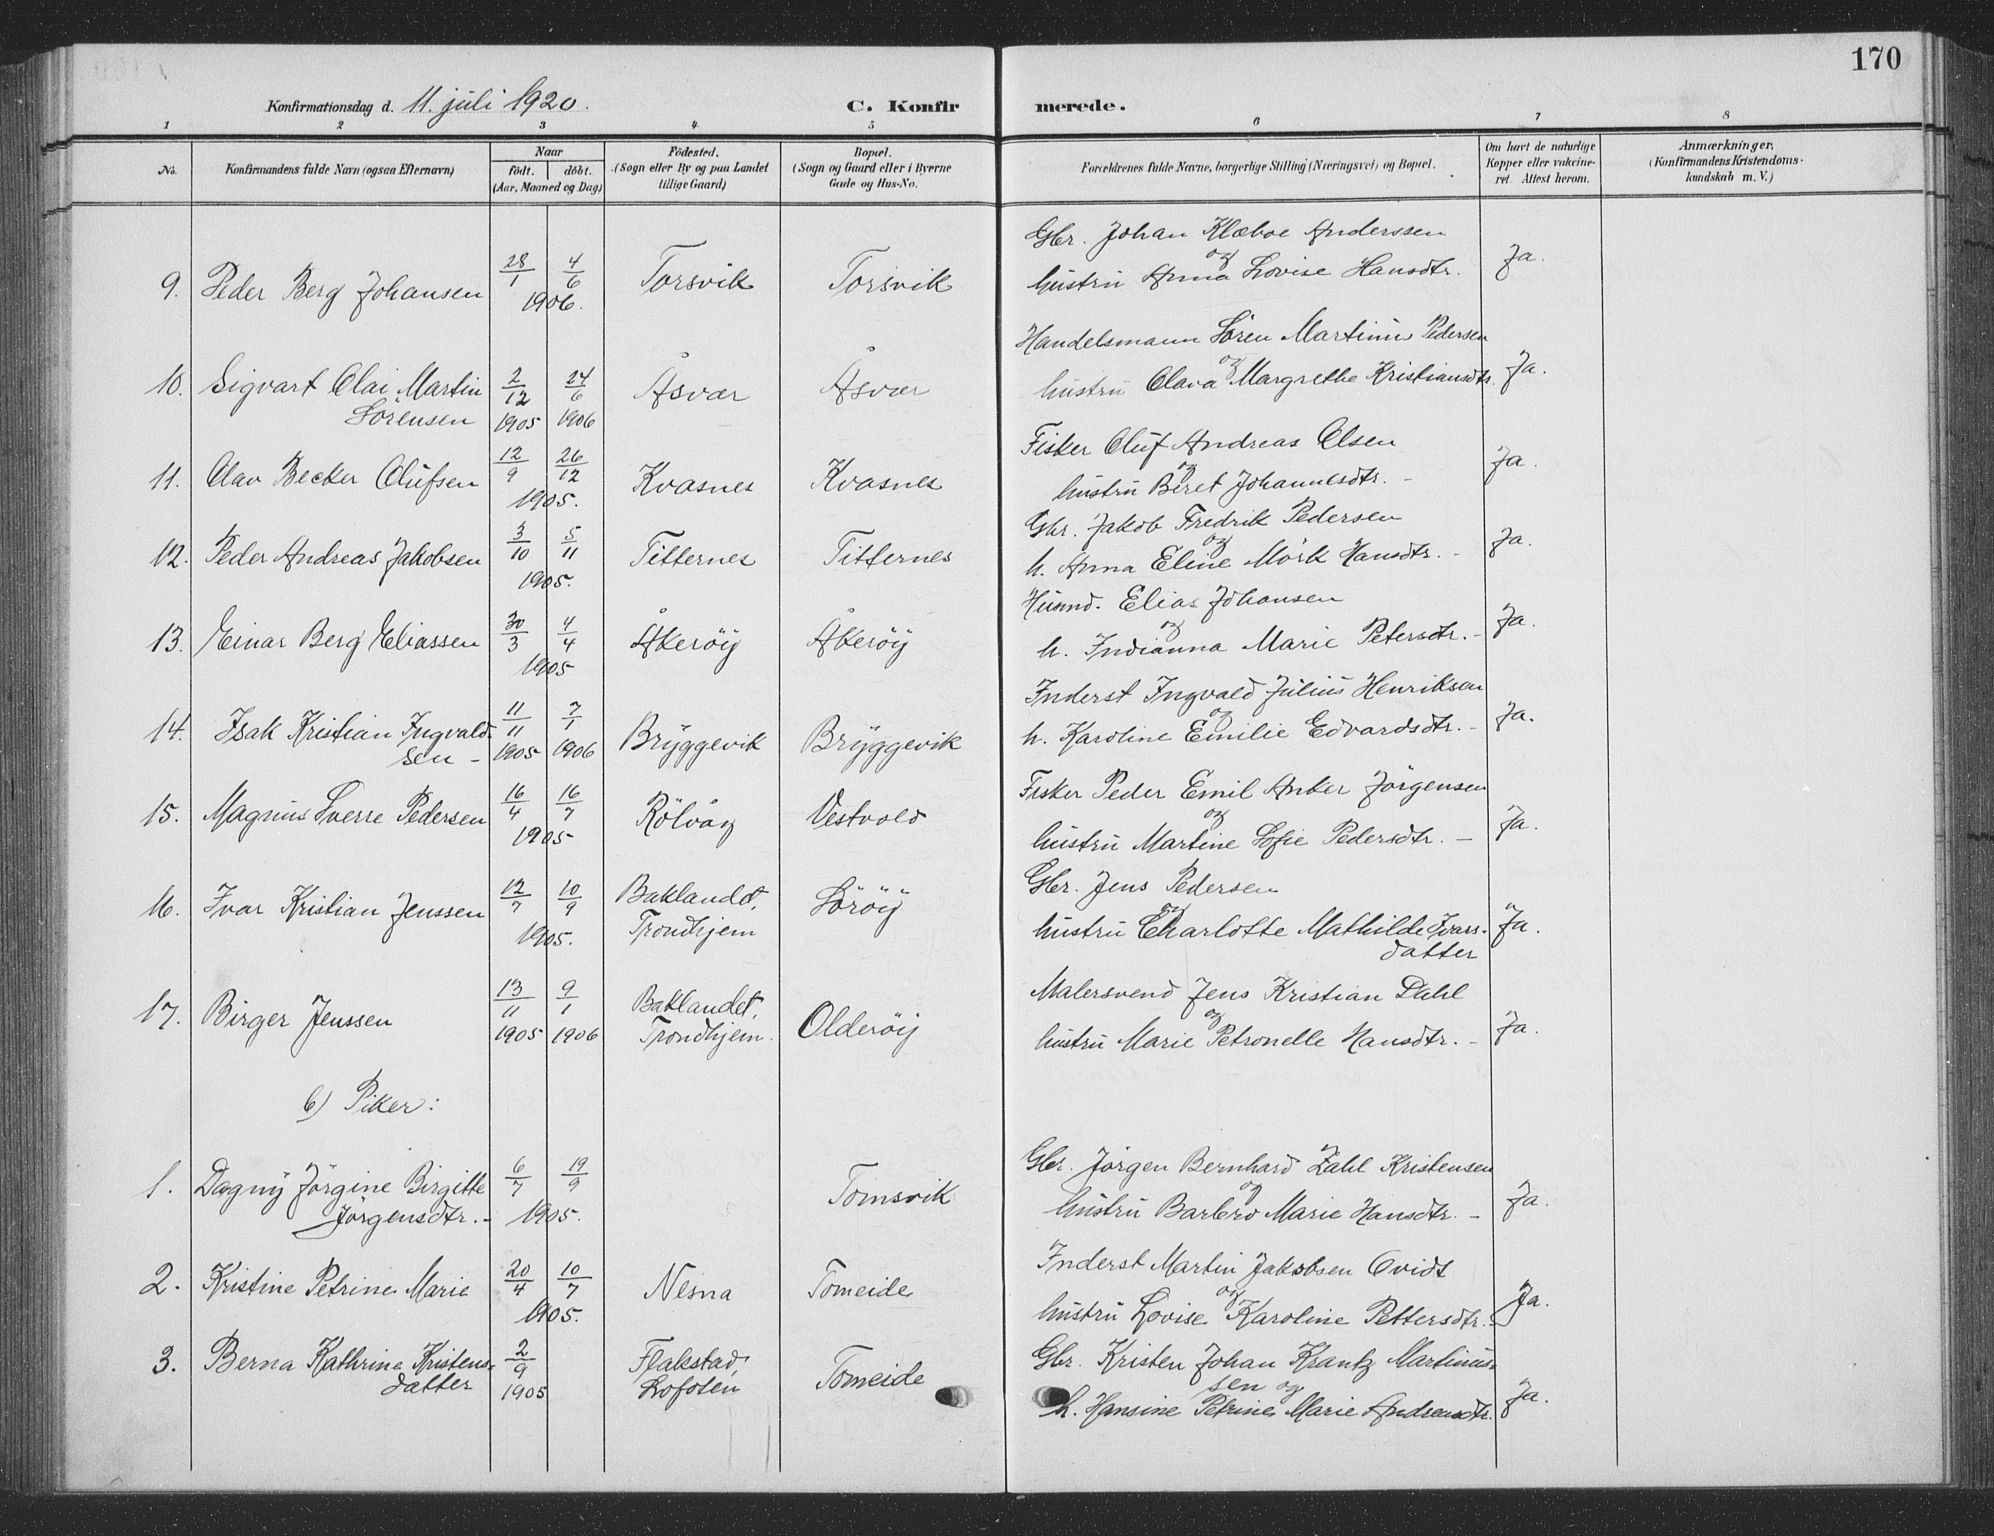 170
Konfirmationsdag d. 11. juli 1920.
C. Konfir merede.
1 2 3 4 5 6 7 8
No.
Konfirmandens fulde Navn (ogsaa Efternavn)
Naar
født. døbt.
(Aar, Maaned og Dag)
Fødested.
(Sogn eller By og paa Landet
tillige Gaard)
Bopæl.
(Sogn og Gaard eller i Byerne
Gade og Hus-No.
Forældrenes fulde Navne, borgerlige Stilling (Næringsvei) og Bopæl.
Om havt de naturlige
Kopper eller vakcine-
ret Attest herom.
Anmærkninger.
(Konfirmandens Kristendoms-
kundskab m. V.)
9. Peder Berg Johansen 28/1 4/6 1906. Torsvik Torsvik
Gbr. Johan Klæboe Anderssen
og
hustru Anna Lovise Hansdtr. Ja.
10. Sigvart Olai Martin
Sörensen 2/12 1905 24/6 1906 Åsvær Åsvær
Handelsmann Sören Martinus Pedersen
og
hustru Olava Margrethe Kristiansdtr. Ja.
11. Olav Becker Olufsen 12/9 26/12 1905. Kvasnes Kvasnes
Fisker Oluf Andreas Olsen
og
hustru Beret Johannesdtr. - Ja.
12. Peder Andreas Jakobsen 3/10 5/11 1905. Titternes Titternes
Gbr. Jakob Fredrik Pedersen
og
h. Anna Eline Mörk Hansdtr. - Ja.
13. Einar Berg Eliassen 30/3 4/4 1905 Åkeröy Åkeröy
Husmd. Elias Johansen
og
h. Indianna Marie Petersdtr. - Ja.
14. Isak Kristian Ingvald-
sen - 11/11 1905 7/1 1906 Bryggevik Bryggevik
Inderst Ingvald Julius Henriksen
og
h. Karoline Emilie Edvardsdtr. - Ja.
15. Magnus Sverre Pedersen 16/4 16/7 1905 Rölvåg Vestvold
Fisker Peder Emil Anker Jörgensen
og
hustru Martine Sofie Pedersdtr. - Ja.
16. Ivar Kristian Jenssen 12/7 10/9 1905. Baklandet,
Trondhjem Söröy
Gbr. Jens Pedersen
og
hustru Charlotte Mathilde Ivars-
datter Ja.
17. Birger Jenssen 13/11 1905 9/1 1906 Baklandet,
Trondhjem. Olderöy
Malersvend Jens Kristian Dahl
og
hustru Marie Petronelle Hansdtr. - Ja.
b) Piker:
1. Dagny Jörgine Birgitte
Jörgensdtr. - 6/7 19/9 1905. Tomsvik
Gbr. Jörgen Bernhard Zahl Kristensen
og
hustru Barbro Marie Hansdtr. - Ja.
2. Kristine Petrine Marie 20/4 10/7 1905. Nesna Tomeide
Inderst Martin Jakobsen Ovidt
og
hustru Lovise Karoline Pettersdtr. Ja.
3. Berna Kathrine Kristens-
datter 2/9 1905 Flakstad,
Lofoten Tomeide
Gbr. Kristen Johan Krantz Martinus-
sen og
h. Hansine Petrine Marie Andreasdtr. Ja.